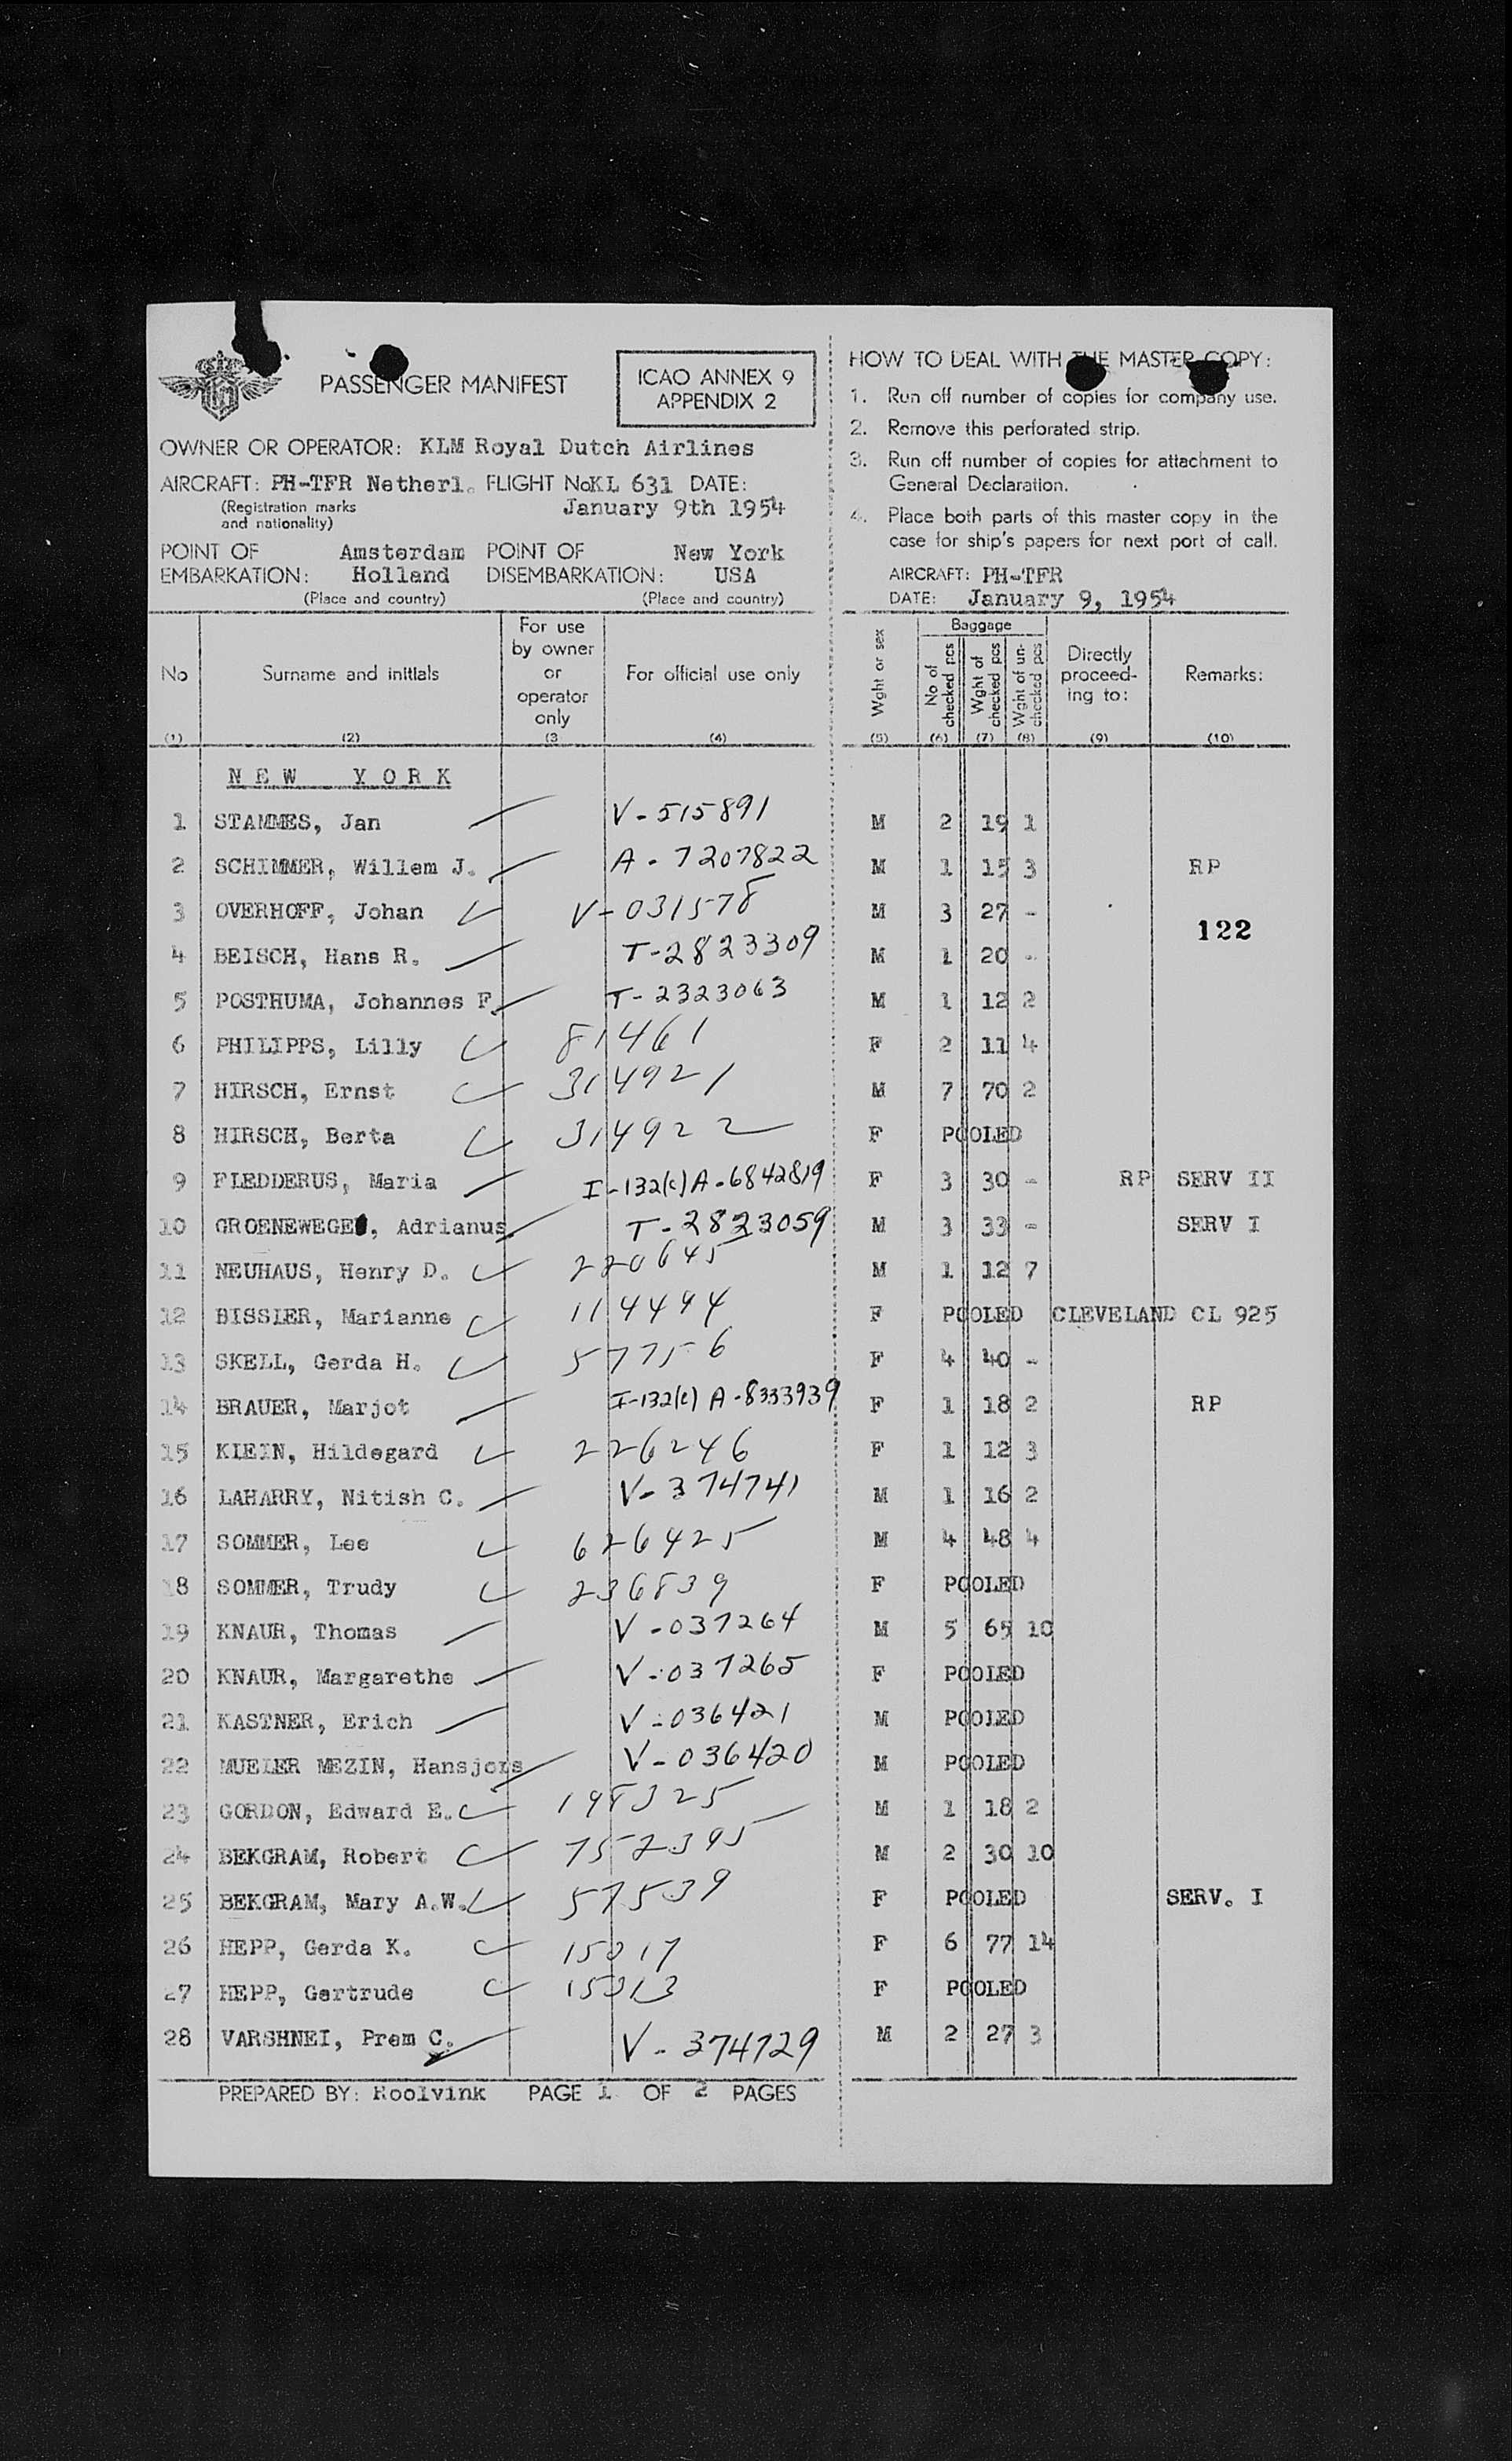 PASSENGER MANIFEST
ICAO ANNEX 9
APPENDIX 2
OWNER OR OPERATOR: KLM Royal Dutch Airlines
AIRCRAFT: PH-TFR Netherl. FLIGHT No KL 631 DATE:
(Registration marks and nationality) January 9th 1954
POINT OF EMBARKATION: Amsterdam Holland POINT OF DISEMBARKATION: New York USA
(Place and country) (Place and country)
HOW TO DEAL WITH THE MASTER COPY:
1. Run off number of copies for company use.
2. Remove this perforated strip.
3. Run off number of copies for attachment to
General Declaration.
4. Place both parts of this master copy in the
case for ship's papers for next port of call.
AIRCRAFT: PH-TFR
DATE: January 9, 1954
No (1) Surname and initials (2) For use by owner or operator only (3 For official use only (4) Wght or sex (5) Baggage No of checked pcs (6) Wght of checked pcs (7) Wght of un-checked pcs (8) Directly proceed-ing to: (9) Remarks: (10)
NEW YORK
1 STAMMES, Jan V-515891 M 2 19 1
2 SCHIMMER, Willem J. A-7207822 M 1 15 3 RP
3 OVERHOFF, Johan V-031578 M 3 27 -
122
4 BEISCH, Hans R. T-2823309 M 1 20 -
5 POSTHUMA, Johannes F. T-2323063 M 1 12 2
6 PHILIPPS, Lilly 81461 F 2 11 4
7 HIRSCH, Ernst 314921 M 7 70 2
8 HIRSCH, Berta 314922 F POOLED
9 FLEDDERUS, Maria I-132(c) A-6842819 F 3 30 - RP SERV II
10 GROENEWEGEN, Adrianus T-2823059 M 3 33 - SERV I
11 NEUHAUS, Henry D. 220645 M 1 12 7
12 BISSIER, Marianne 114494 F POOLED CLEVELAND CL 925
13 SKELL, Gerda H. 57756 F 4 40 -
14 BRAUER, Marjot I-132(c) A-8333939 F 1 18 2 RP
15 KLEIN, Hildegard 226246 F 1 12 3
16 LAHARRY, Nitish C. V-374741 M 1 16 2
17 SOMMER, Lee 626425 M 4 48 4
18 SOMMER, Trudy 236839 F POOLED
19 KNAUR, Thomas V-037264 M 5 65 10
20 KNAUR, Margarethe V-037265 F POOLED
21 KASTNER, Erich V-036421 M POOLED
22 MUELER MEZIN, Hansjors V-036420 M POOLED
23 GORDON, Edward E. 198325 M 1 18 2
24 BEKGRAM, Robert 752395 M 2 30 10
25 BEKGRAM, Mary A.W. 57539 F POOLED SERV. I
26 HEPP, Gerda K. 15017 F 6 77 14
27 HEPP, Gertrude 15013 F POOLED
28 VARSHNEI, Prem C. V-374729 M 2 27 3
PREPARED BY: Roolvink PAGE 1 OF 2 PAGES